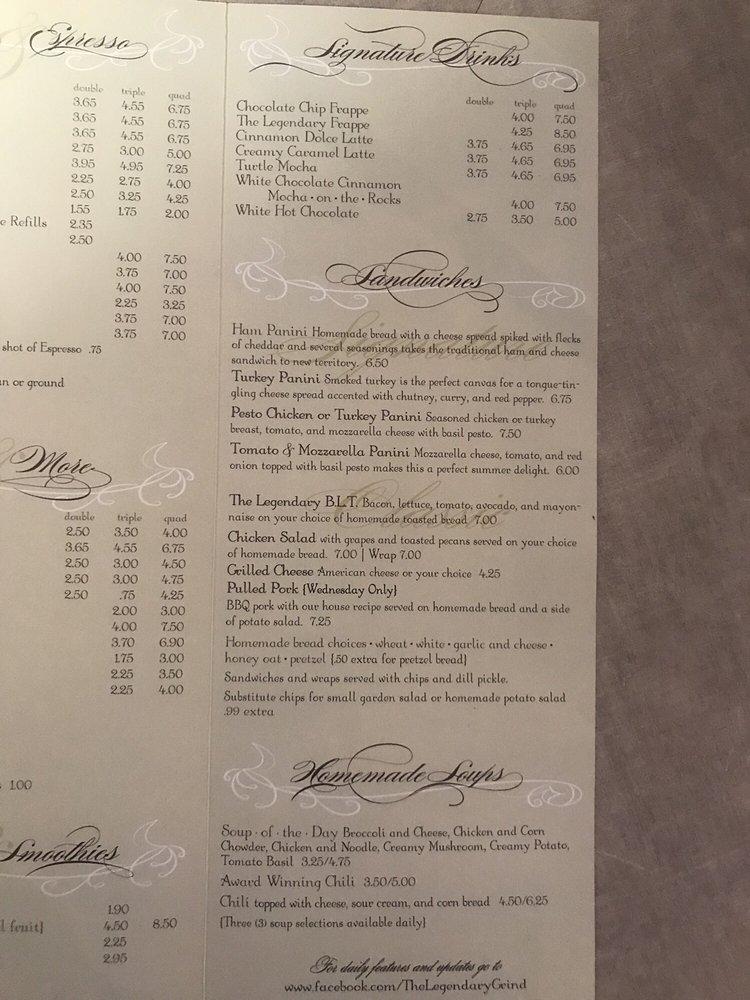 Espresso
double triple quad
3.65 4.55 6.75
3.65 4.55 6.75
3.65 4.55 6.75
2.75 3.00 5.00
3.95 4.95 7.25
2.25 2.75 4.00
2.50 3.25 4.25
1.55 1.75 2.00
e Refills 2.35
2.50
4.00 7.50
3.75 7.00
4.00 7.50
2.25 3.25
3.75 7.00
3.75 7.00
shot of Espresso .75
n or ground
More
double triple quad
2.50 3.50 4.00
3.65 4.55 6.75
2.50 3.00 4.50
2.50 3.00 4.75
2.50 .75 4.25
2.00 3.00
4.00 7.50
3.70 6.90
1.75 3.00
2.25 3.50
2.25 4.00
1.00
Smoothies
1.90
l fruit} 4.50 8.50
2.25
2.95
Signature Drinks
double triple quad
Chocolate Chip Frappe 4.00 7.50
The Legendary Frappe 4.25 8.50
Cinnamon Dolce Latte 3.75 4.65 6.95
Creamy Caramel Latte 3.75 4.65 6.95
Turtle Mocha 3.75 4.65 6.95
White Chocolate Cinnamon
Mocha • on • the • Rocks 4.00 7.50
White Hot Chocolate 2.75 3.50 5.00
Sandwiches
Ham Panini Homemade bread with a cheese spread spiked with flecks
of cheddar and several seasonings takes the traditional ham and cheese
sandwich to new territory. 6.50
Turkey Panini Smoked turkey is the perfect canvas for a tongue-tin-
gling cheese spread accented with chutney, curry, and red pepper. 6.75
Pesto Chicken or Turkey Panini Seasoned chicken or turkey
breast, tomato, and mozzarella cheese with basil pesto. 7.50
Tomato & Mozzarella Panini Mozzarella cheese, tomato, and red
onion topped with basil pesto makes this a perfect summer delight. 6.00
The Legendary B.L.T. Bacon, lettuce, tomato, avocado, and mayon-
naise on your choice of homemade toasted bread 7.00
Chicken Salad with grapes and toasted pecans served on your choice
of homemade bread. 7.00 | Wrap 7.00
Grilled Cheese American cheese or your choice 4.25
Pulled Pork {Wednesday Only}
BBQ pork with our house recipe served on homemade bread and a side
of potato salad. 7.25
Homemade bread choices • wheat • white • garlic and cheese •
honey oat • pretzel {.50 extra for pretzel bread}
Sandwiches and wraps served with chips and dill pickle.
Substitute chips for small garden salad or homemade potato salad
.99 extra
Homemade Soups
Soup • of • the • Day Broccoli and Cheese, Chicken and Corn
Chowder, Chicken and Noodle, Creamy Mushroom, Creamy Potato,
Tomato Basil 3.25/4.75
Award Winning Chili 3.50/5.00
Chili topped with cheese, sour cream, and corn bread 4.50/6.25
{Three (3) soup selections available daily}
For daily features and updates go to
www.facebook.com/TheLegendaryGrind